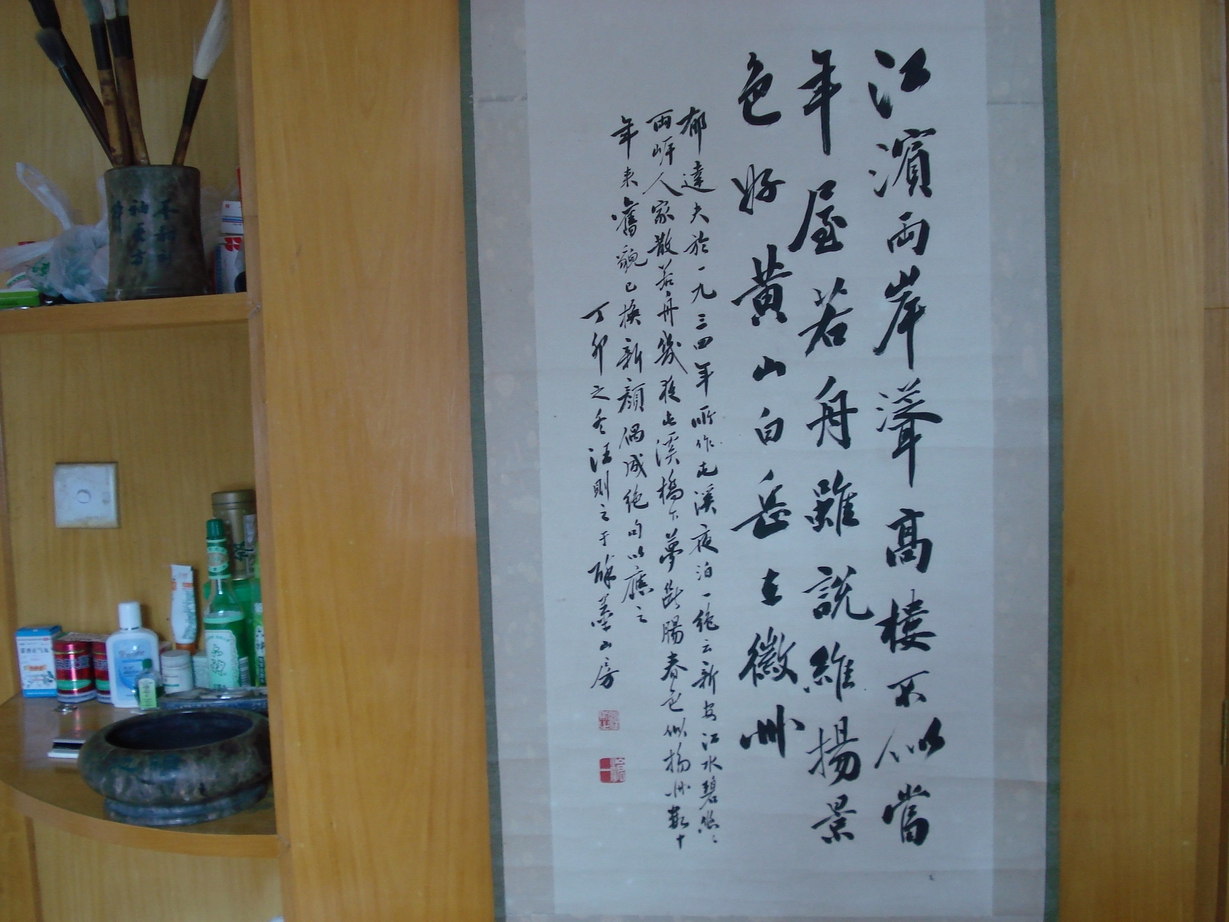 江濱兩岸聳高樓不似當
年屋若舟雖說維揚景
色好黃山白岳在徽州
郁達夫於一九三四年所作屯溪夜泊一絕云新安江水碧悠々
兩岸人家散若舟幾夜屯溪橋下夢斷腸春色似揚州數十
年來舊貌已換新顏偶成絕句以應之
丁卯之冬汪則之于山房